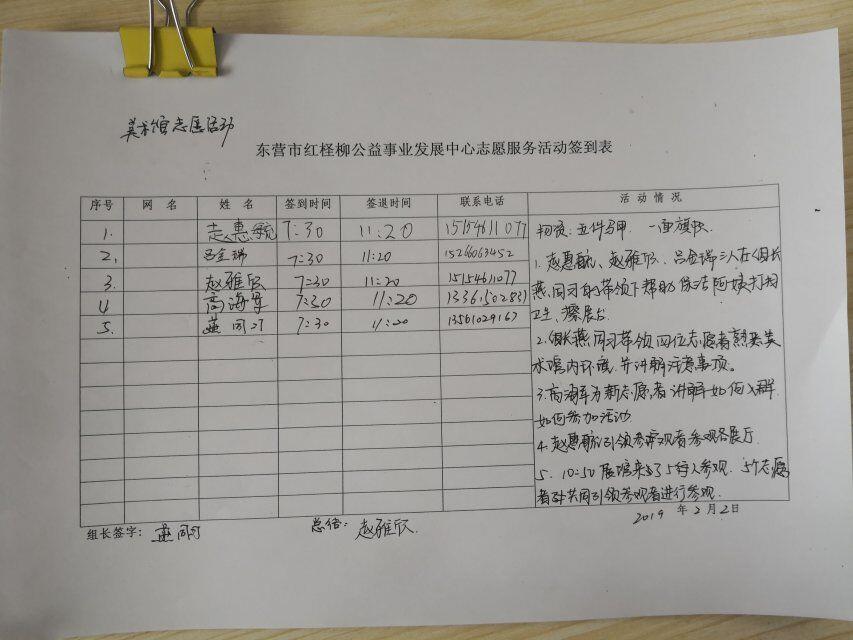 美术馆志愿活动
东营市红柽柳公益事业发展中心志愿服务活动签到表
序号 网 名 姓 名 签到时间 签退时间 联系电话 活 动 情 况
1. 赵惠毓 7:30 11:20 15154611077
2. 吕金瑞 7:30 11:20 15266063452
3. 赵雅欣 7:30 11:20 15154611077
4 高海军 7:30 11:20
5. 燕同习 7:30 11:20 13561029167
物资:五件马甲 一面旗帜
1.赵惠毓、赵雅欣、吕金瑞三人在组长
燕同习的带领下帮助保洁阿姨打扫
卫生、擦展台
2.组长燕同习带领四位志愿者熟悉美
术馆内环境,并讲解注意事项。
3.高海军为新志愿者讲解如何入群
如何参加活动
4.赵惠毓引领参观者参观各展厅
5. 10:50展馆来了 参观 5个志愿
者 共同引领参观者进行参观
2019 年 2 月 2 日
组长签字: 燕同习 总结: 赵雅欣